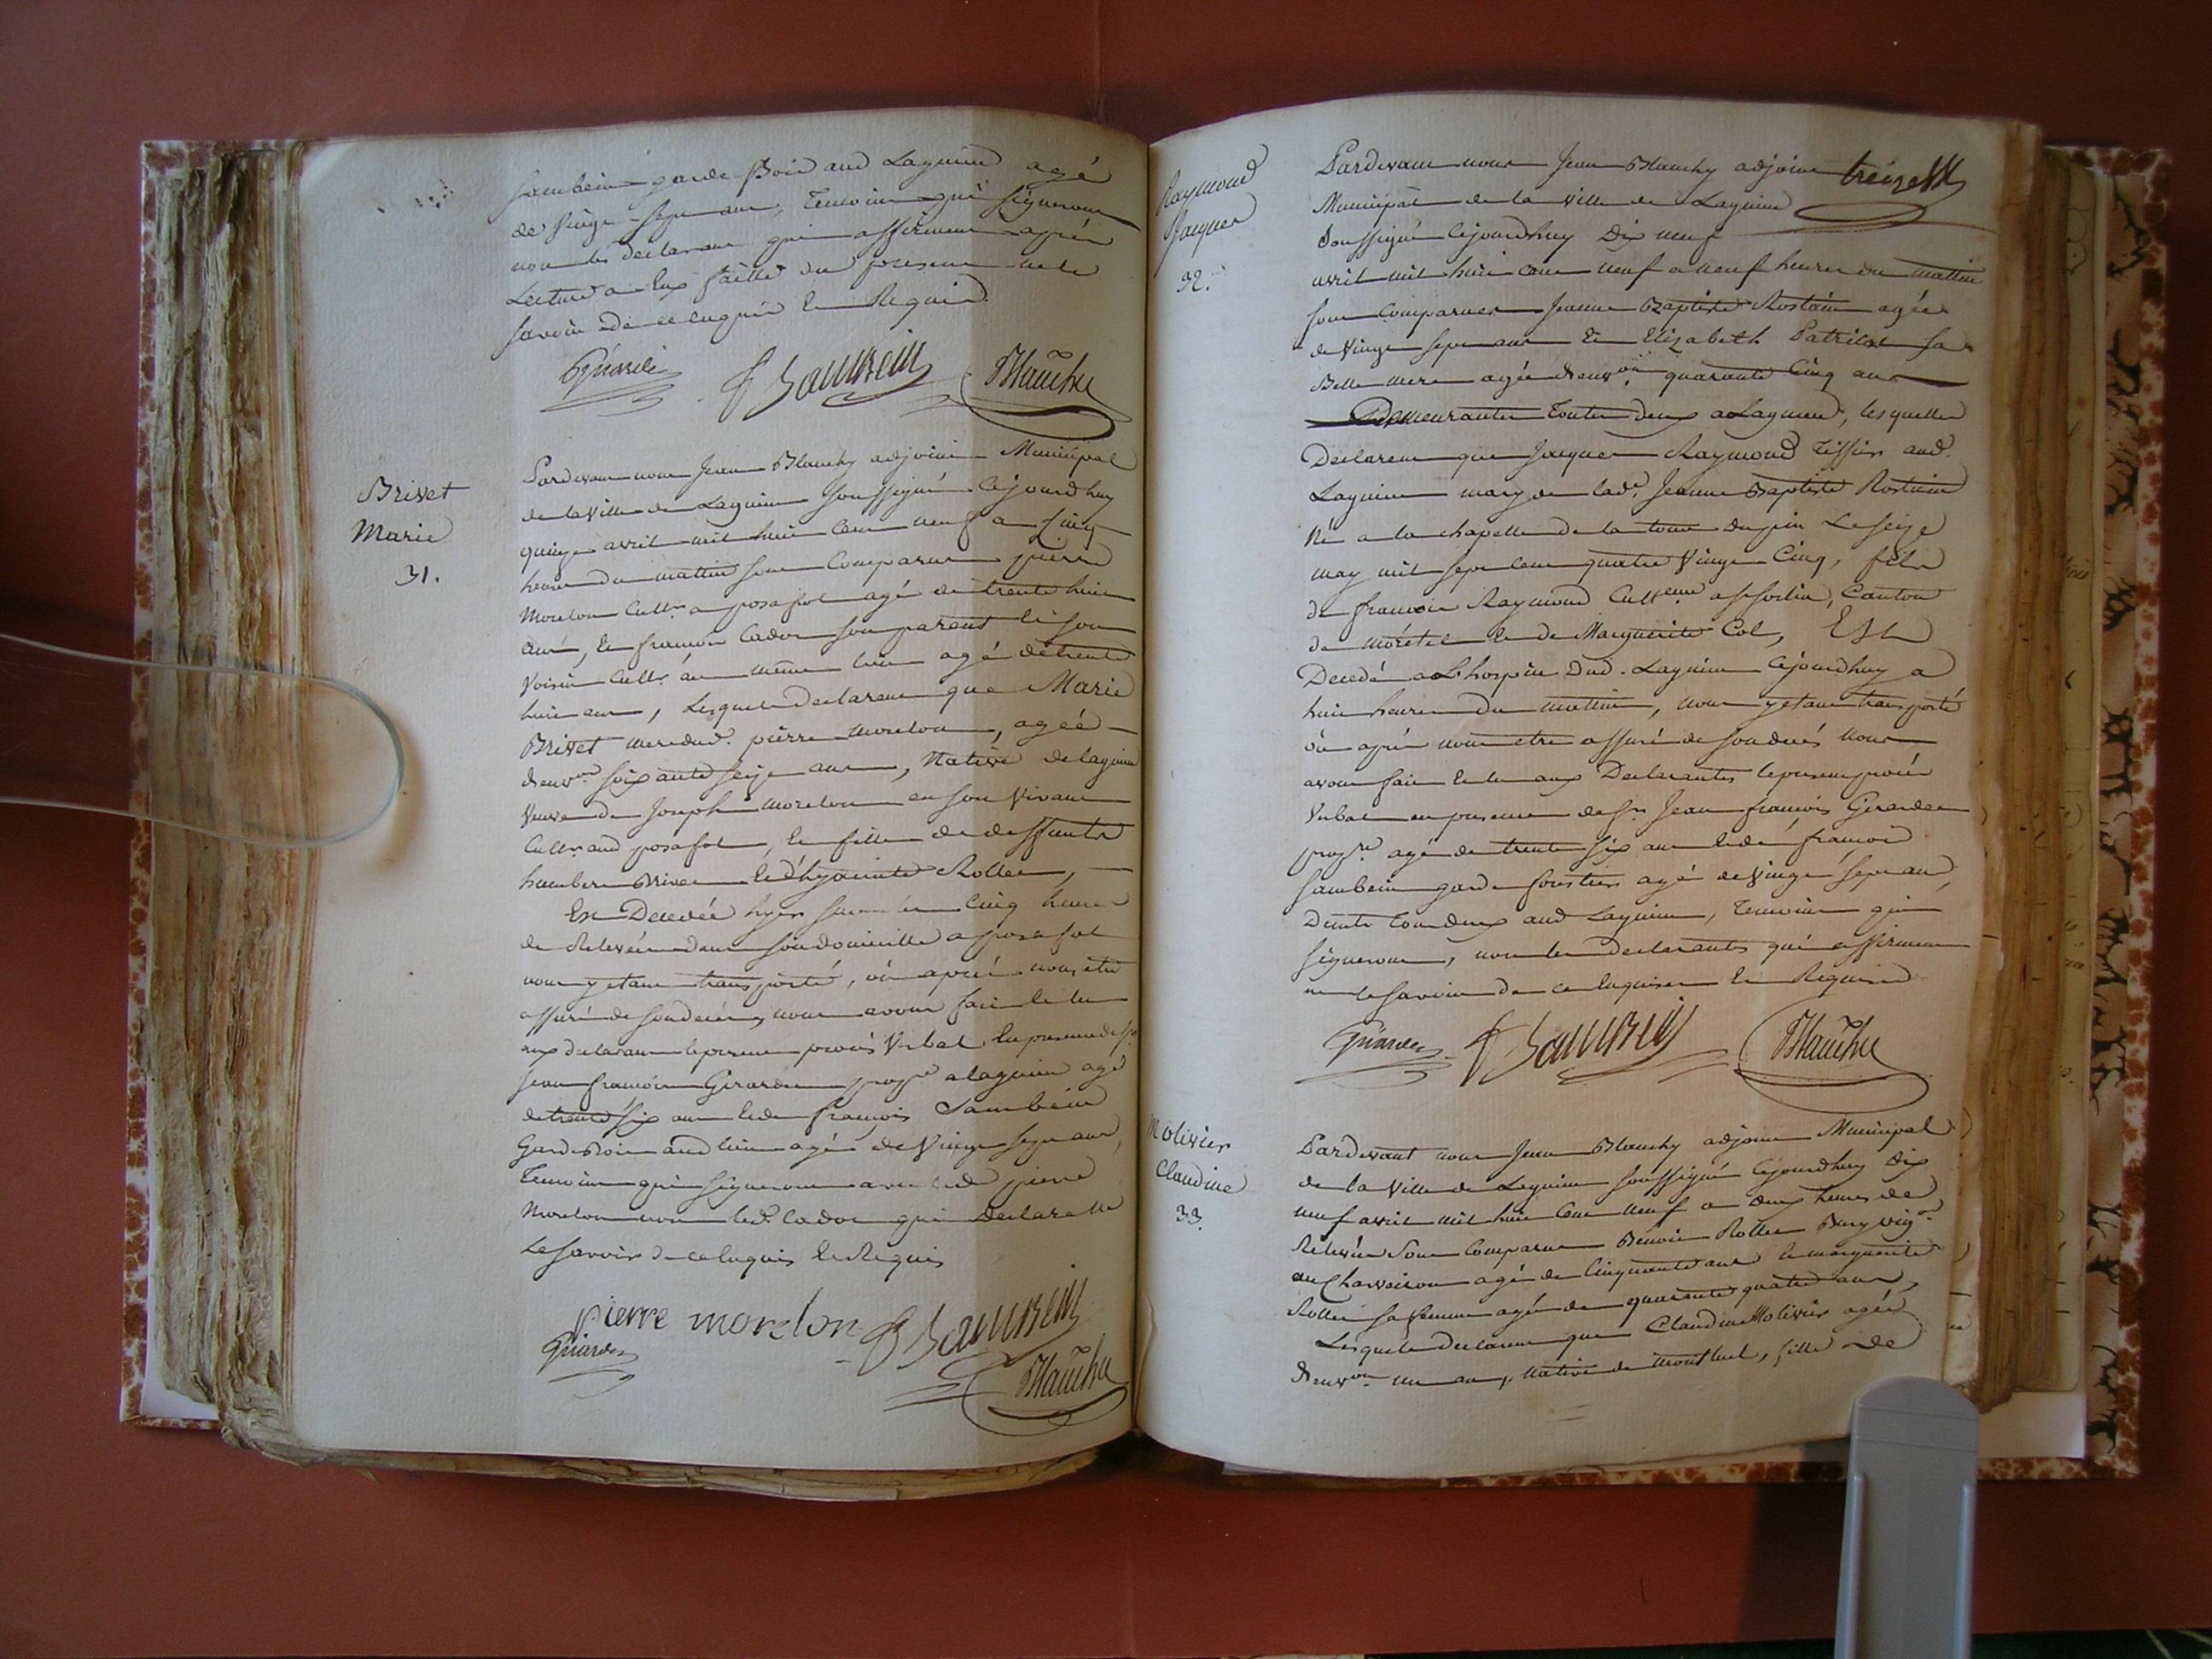 Sambein garde Bois aud Lagnieu agé
de vingt sept ans, Temoins qui signeront
non les declarans qui affirment après
Lecture a Eux faitte du present ne le
savoir De ce enquis et Requis
Girardet Sambein Blanchy
Brivet
Marie
31.
Pardevant nous Jean Blanchy adjoint Municipal
de la ville de Lagnieu soussigné Cejourdhuy
quinze avril mil huit cent neuf a cinq
heures du mattin sont Comparus pierre
Morelon Cultr. a posafol agé de trente huit
ans, et françois Cador son parent
voisin Cultr. au même lieu agé de trente
huit ans, Lesquels declarent que Marie
Brivet mere dud. pierre morelon, ageé
d'envon soixante seize ans, Native de lagnieu
veuve de Joseph morelon en son vivant
Cultr. aud posafol, et fille de deffunts
humbert Brivet et d'hyacinte Rollet,
Est Decedée hyer sur les cinq heures
de Relevée dans son domicille a posafol
nous y etant transporté, où après nous être
assuré de son decès, nous avons fait et lu
aux declarans le present procès Verbal En presence de Sr.
Jean françois Girardet propre a lagnieu agé
de trente six ans et de françois Sambein
Garde Bois aud lieu agé de Vingt sept ans,
Temoins qui signeront avec led pierre
Morelon non led. Cador qui declare ne
Le savoir de ce enquis et Requis
pierre morelon Sambein
Girardet Blanchy
Raymond
Jacques
32.
Pardevant nous Jean Blanchy adjoint
Municipal de la ville de Lagnieu
Soussigné Cejourdhuy Dix neuf
avril mil huit cent neuf a neuf heures du mattin
sont Comparues Jeanne Baptiste Rostain agée
de Vingt sept ans Et Elizabeth Patrilot sa
Belle mere agée d'environ quarante Cinq ans
Demeurantes Toutes deux a Lagnieu, lesquelles
Declarent que Jacques Raymond Tissier aud.
Lagnieu mary de lade. Jeanne Baptiste Rostain
Né a la chapelle de la tour dupin Le seize
may mil sept cent quatre Vingt Cinq, fils
de françois Raymond Cultr. Canton
de Moretel et de Marguerite Col, Est
Decedé a L'hospice Dud. Lagnieu Cejourdhuy a
huit heures du mattin, nous y etant transporté
où après nous etre assuré de son decès nous
avons fait et lu aux Declarantes le present procès
Verbal en presence de Sr. Jean françois Girardet
propre. agé de trente six ans et de françois
Sambein garde forestier agé de Vingt sept ans,
Tous deux aud Lagnieu, Temoins qui
signeront, non les declarantes qui affirment
ne le savoir de ce enquises et Requises
Girardet Sambein Blanchy
Molivier
Claudine
33.
Pardevant nous Jean Blanchy adjoint Municipal
de la Ville de Lagnieu soussigné Cejourdhuy Dix
neuf avril mil huit Cent neuf a deux heures de
Relevée Sont Comparus Benoit Rollet Bury vigr.
au Charveiron agé de Cinquante ans et marguerite
Rollet sa femme agée de quarante quatre ans,
Lesquels declarent que Claudine Molivier agée
d'environ un an, native de montluel, fille de